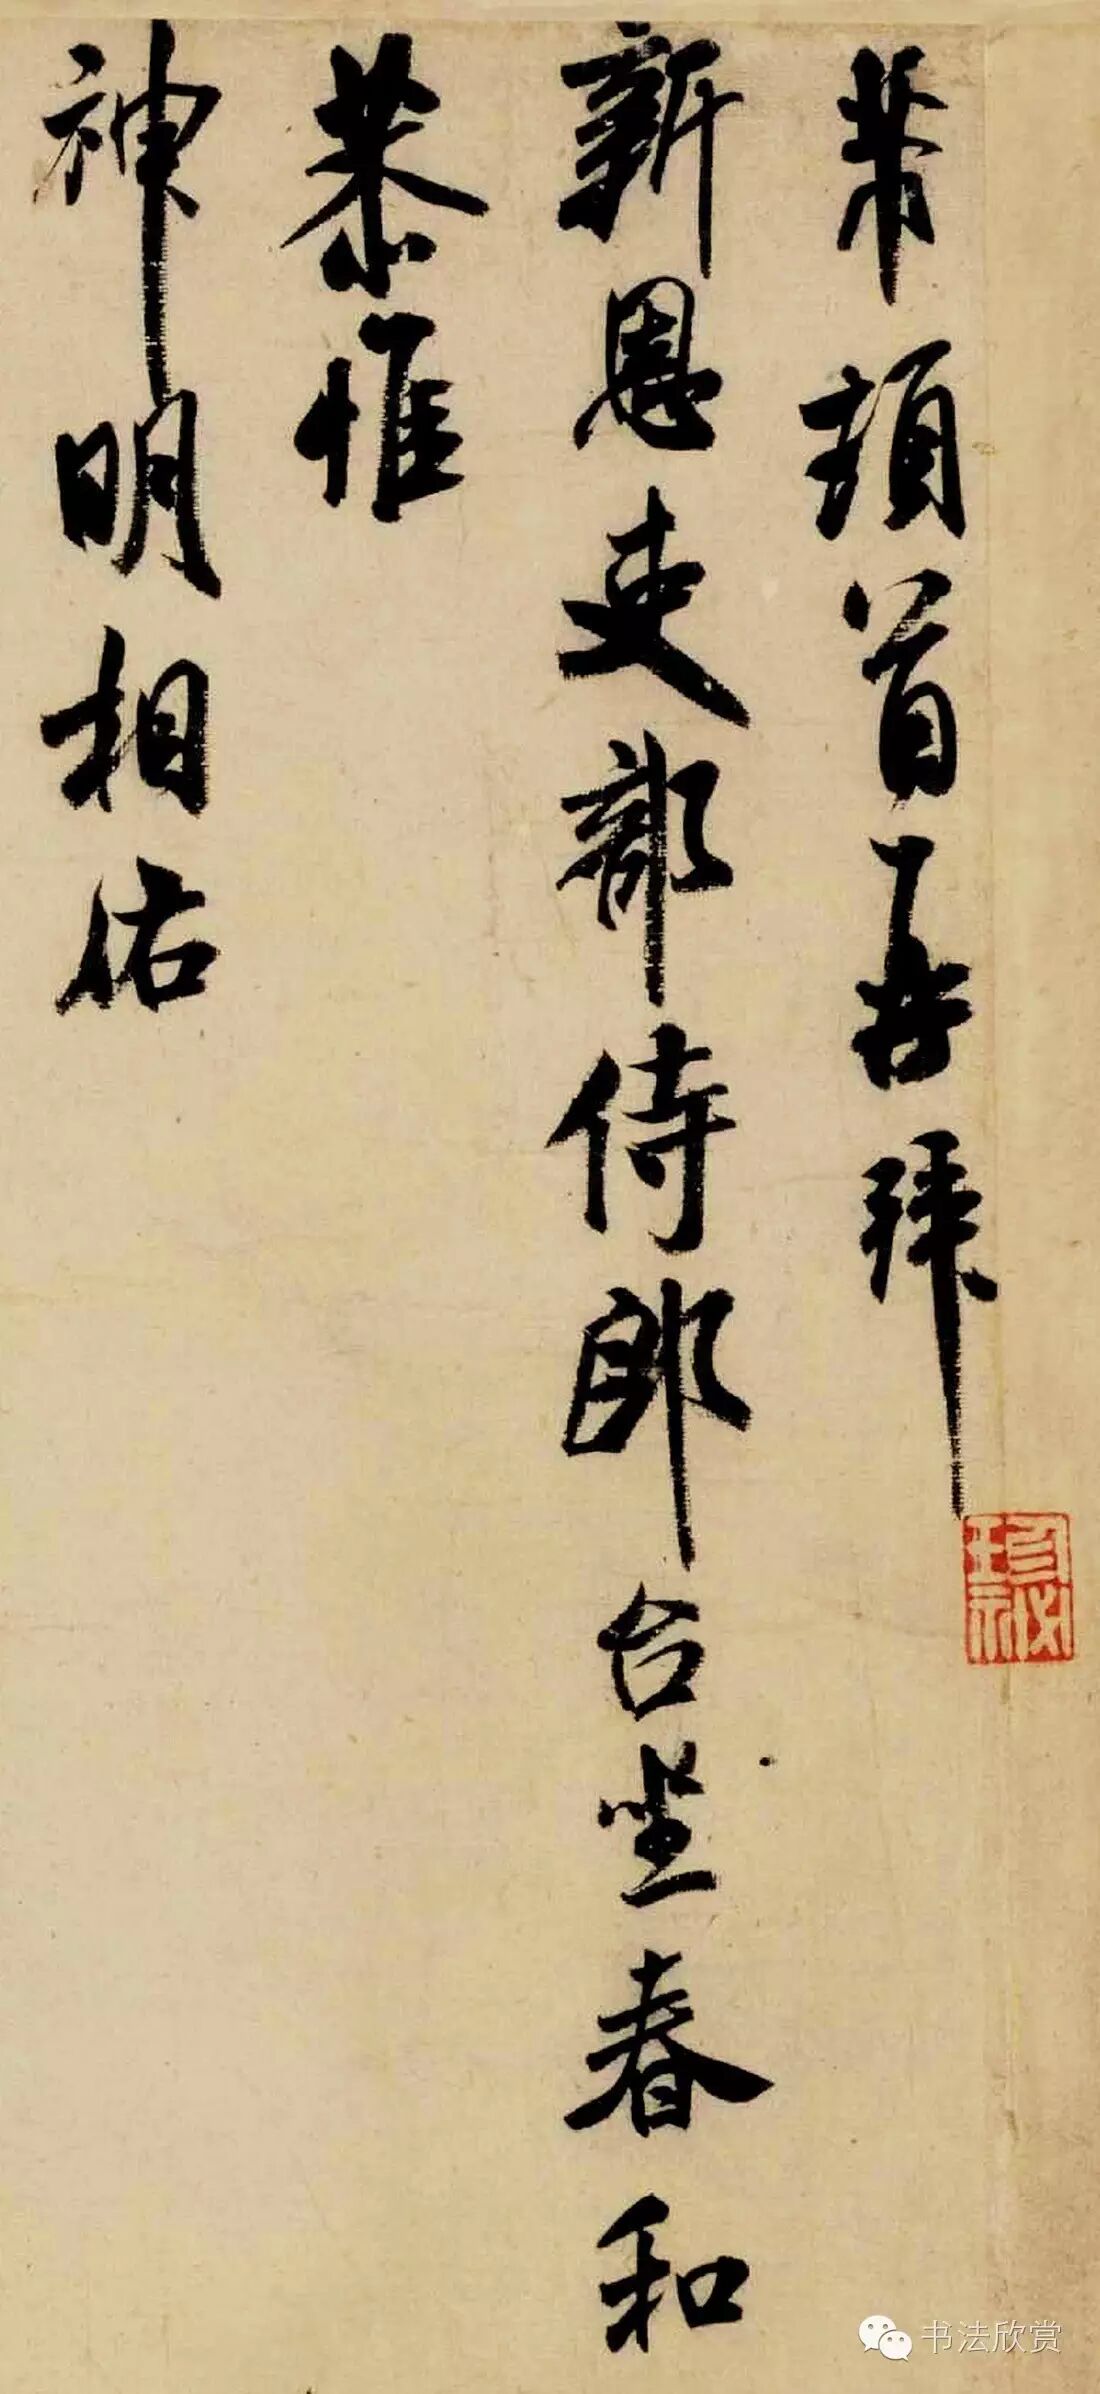 芾頓首再拜
新恩吏部侍郎台坐春和
恭惟
神明相佑
珍祕
书法欣赏